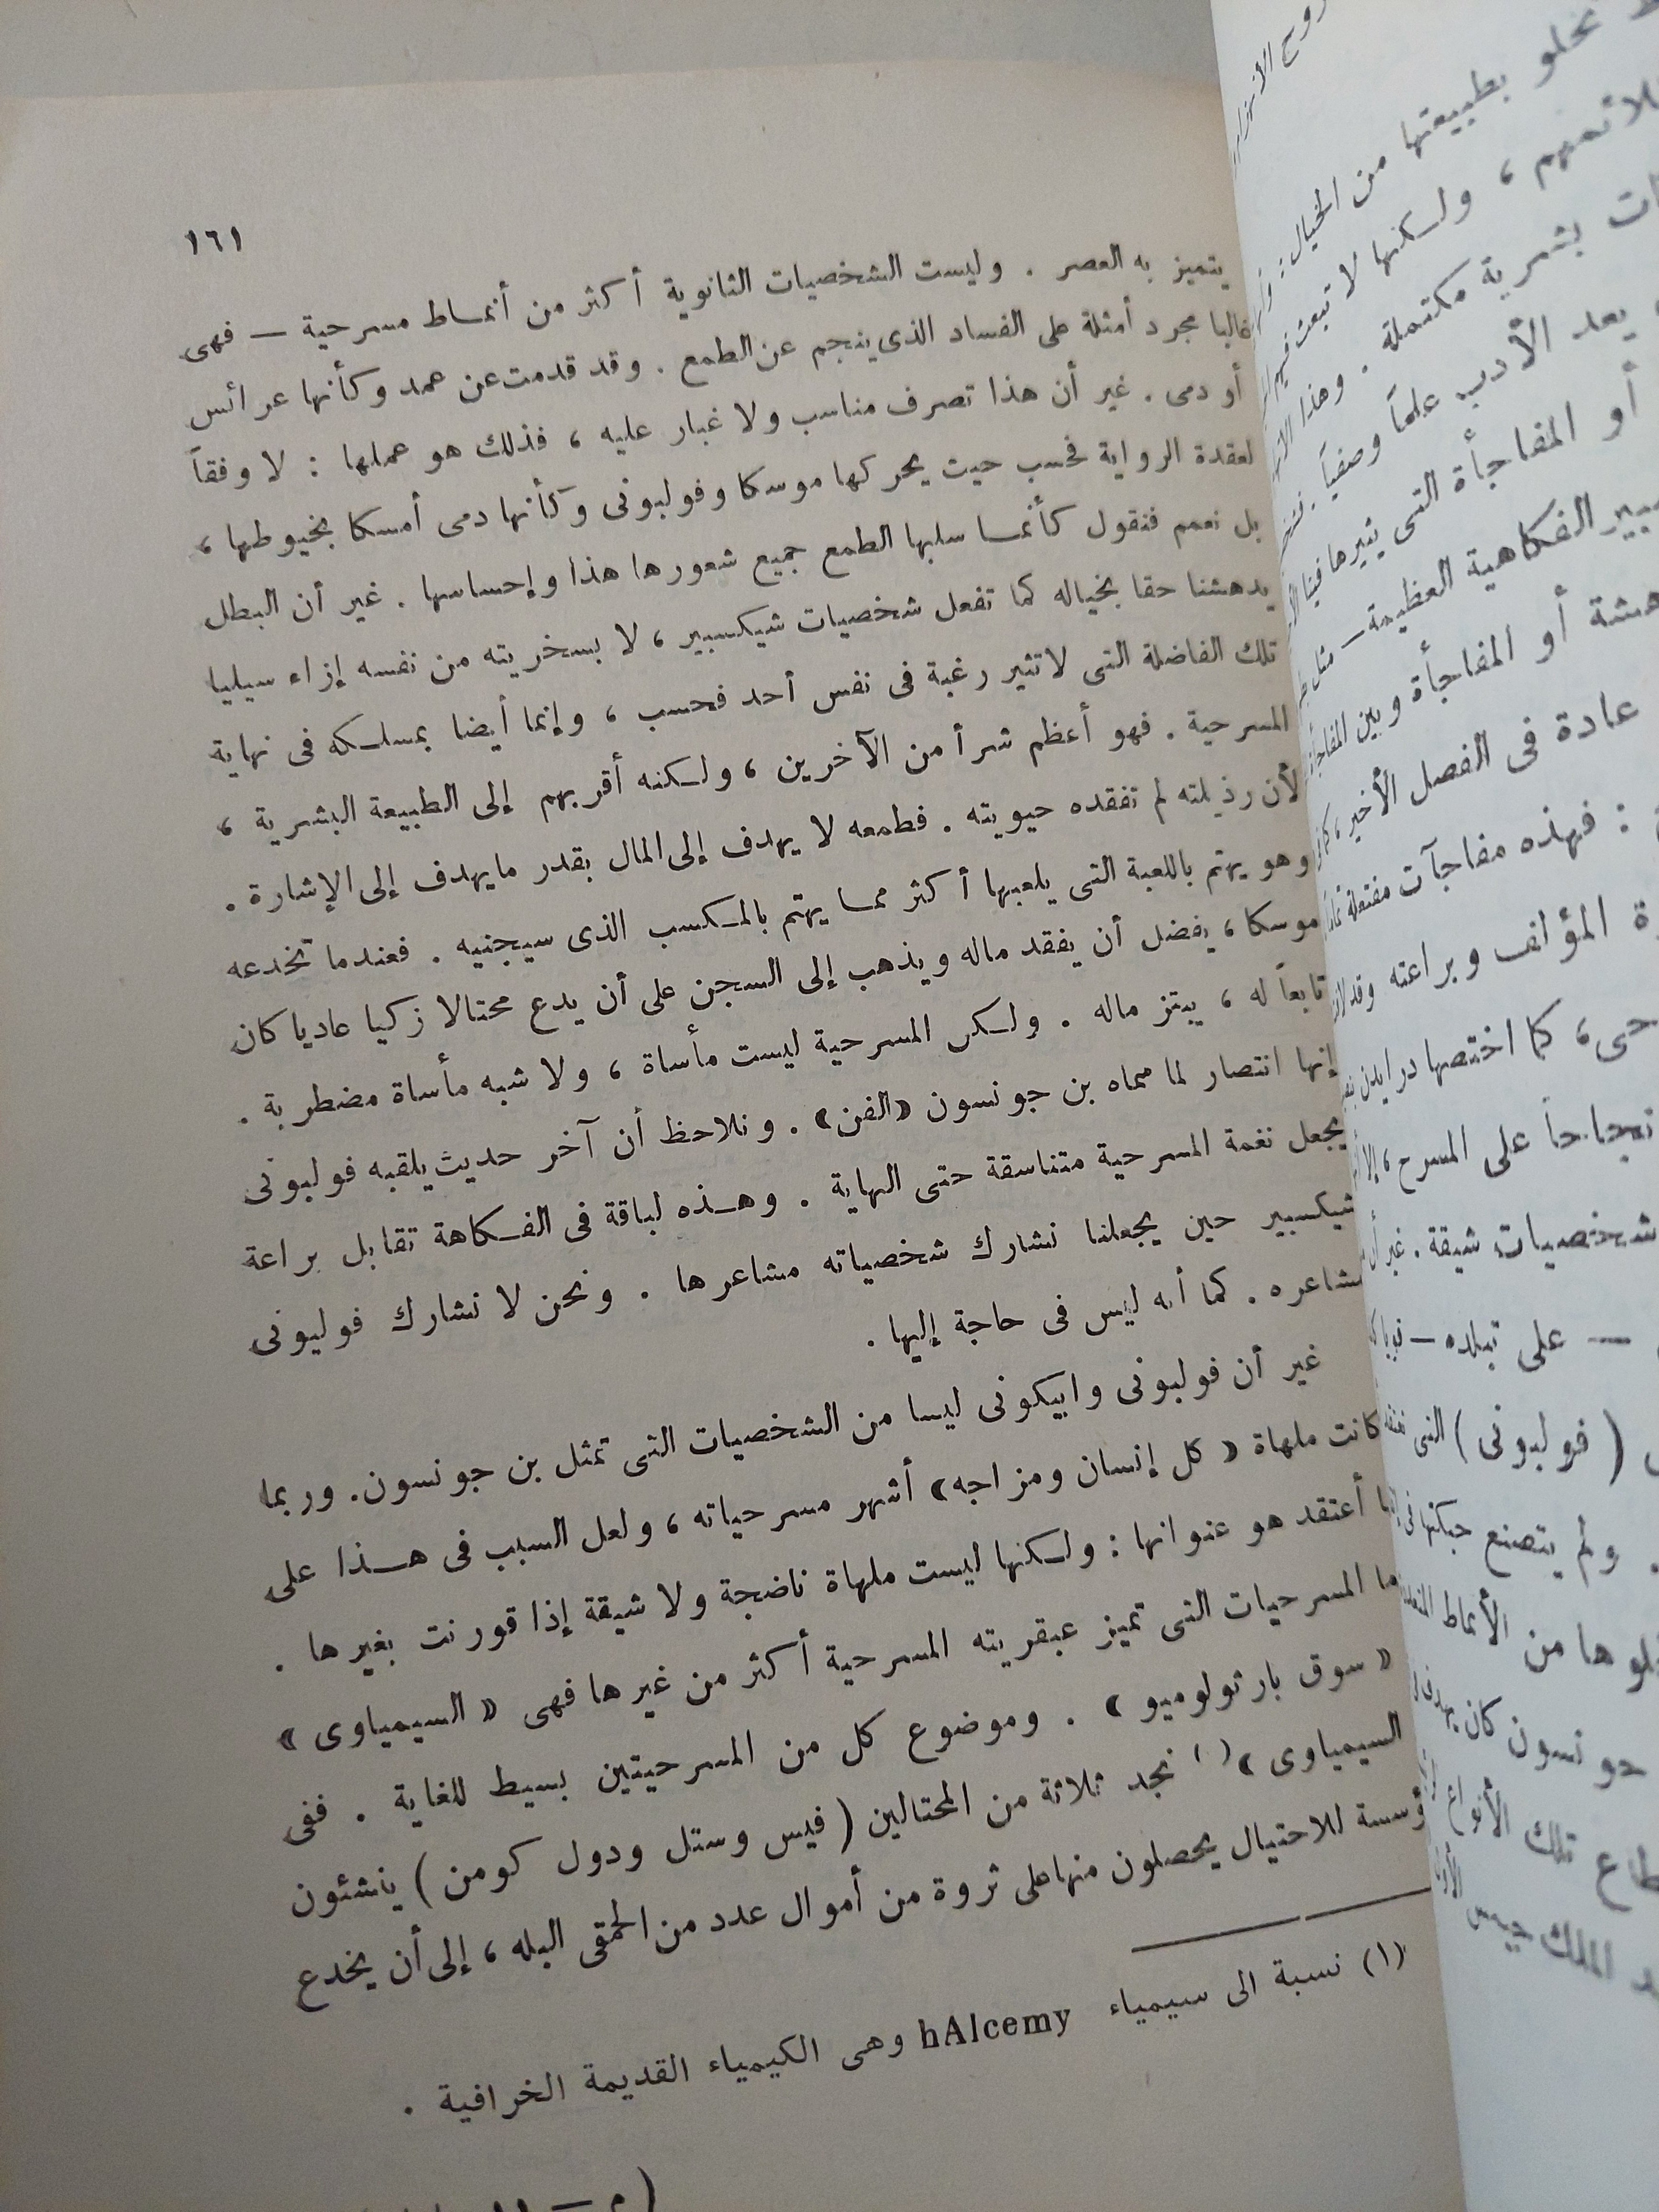 ١٦١
يتميز به العصر . وليست الشخصيات الثانوية أكثر من أنمـاط مسرحية — فهى
غالبا مجرد أمثلة على الفساد الذى ينجم عن الطمع . وقد قدمت عن عمد وكأنها عرائس
أو دمى . غير أن هذا تصرف مناسب ولا غبار عليه ، فذلك هو عملها : لا وفقاً
لعقدة الرواية فحسب حيث يحركها موسكا وفولبونى وكأنها دمى أمسكا بخيوطها ،
بل نعمم فنقول كأنمـا سلبها الطمع جميع شعورها هذا وإحساسها . غير أن البطل
يدهشنا حقا بخياله كما تفعل شخصيات شيكسبير ، لا بسخريته من نفسه إزاء سيليا
تلك الفاضلة التى لا تثير رغبة فى نفس أحد فحسب ، وإنما أيضا بمسلـكه فى نهاية
المسرحية . فهو أعظم شراً من الآخرين ، ولـكنه أقربهم إلى الطبيعة البشرية ،
لأن رذيلته لم تفقده حيويته . فطمعه لا يهدف إلى المال بقدر ما يهدف إلى الإشارة .
وهو يهتم باللعبة التى يلعبها أكثر ممـا يهتم بالمـكسب الذى سيجنيه . فعندما تخدعه
موسكا ، يفضل أن يفقد ماله ويذهب إلى السجن على أن يدع محتالا زكيا عاديا كان
تابعاً له ، يبتز ماله . ولـكن المسرحية ليست مأساة ، ولا شبه مأساة مضطربة .
إنها انتصار لما سماه بن جونسون «الفن» . ونلاحظ أن آخر حديث يلقيه فولبونى
يجعل نغمة المسرحية متناسقة حتى النهاية . وهـذه لباقة فى الفـكاهة تقابل براعة
شيكسبير حين يجعلنا نشارك شخصياته مشاعرها . ونحن لا نشارك فولبونى
مشاعره . كما أنه ليس فى حاجة إليها .
غير أن فولبونى وابيكونى ليسا من الشخصيات التى تمثل بن جونسون. وربما
كانت ملهاة « كل إنسان ومزاجه» أشهر مسرحياته ، ولعل السبب فى هـذا على
أعتقد هو عنوانها : ولـكنها ليست ملهاة ناضجة ولا شيقة إذا قورنت بغيرها .
المسرحيات التى تميز عبقريته المسرحية أكثر من غيرها فهى « السيمياوى »
« سوق بارثولوميو » . وموضوع كل من المسرحيتين بسيط للغاية . ففى
السيمياوى » نجد ثلاثة من المحتالين ( فيس وستل ودول كومن ) ينشئون
مؤسسة للاحتيال يحصلون منها على ثروة من أموال عدد من الحمقى البله ، إلى أن يخدع
(١) نسبة الى سيمياء hAlcemy وهى الكيمياء القديمة الخرافية .
تخلو بطبيعتها من الخيال :
، ولـكنها لا تبعث فيهم
بشرية مكتملة . وهذا
يعد الأدب علماً وصفياً .
أو المفاجأة التى يثيرها فينا
الفكاهية العظيمة — مثل
أو المفاجأة وبين
عادة فى الفصل الأخير ،
: فهذه مفاجآت مفتعلة
المؤلف وبراعته
كما اختصها درايدن
نجاحاً على المسرح ، إلا
شخصيات شيقة . غير أن
— على تبلده —
( فولبونى ) التى
. ولم يتصنع حبكتها فى
من الأنماط
جونسون كان يهدف
تلك الأنواع
الملك جيمس